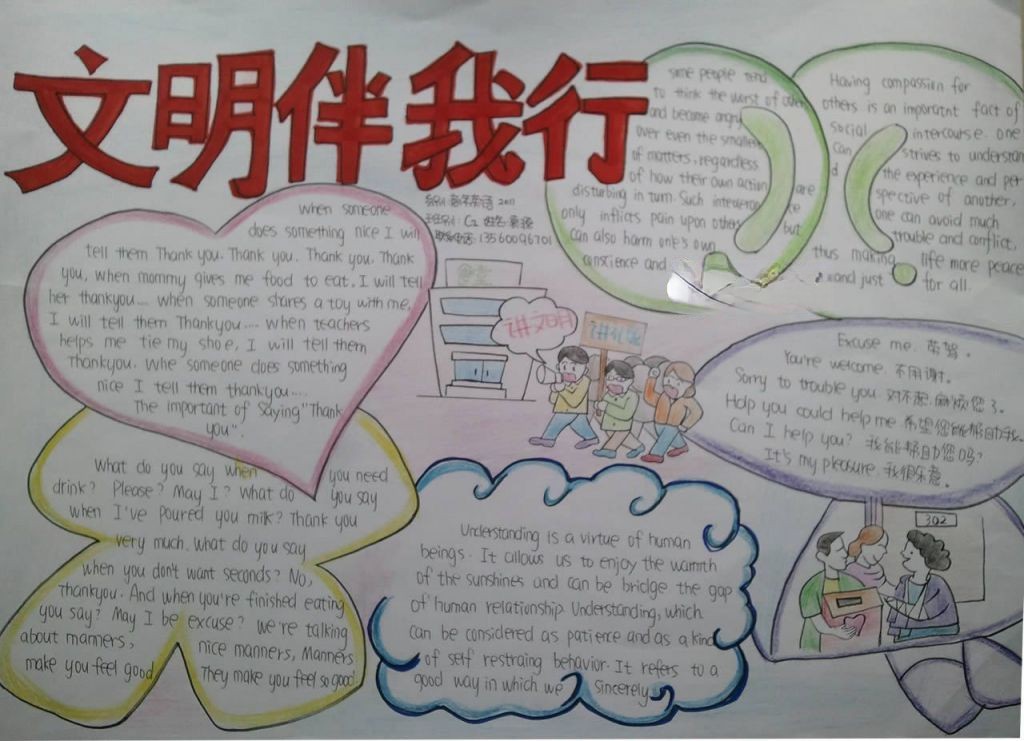 文明伴我行
some people tend
to think the worst of others
and become angry
over even the smallest
of matters, regardless
of how their own action
disturbing in turn. Such
are
only inflicts pain upon others
but
can also harm one's own
conscience and
Having compassion for
others is an imporatnt fact of
social intercourse. one
can strives to understan
d the experience and per
spective of another,
one can avoid much
trouble and conflict,
thus making life more peace
and just for all.
2011
班别: C2 姓名:
电话: 13560096701
When someone
does something nice I will
tell them Thank you. Thank you. Thank you. Thank
you, when mommy gives me food to eat. I will tell
her thankyou.... when someone shares a toy with me,
I will tell them Thankyou.... when teachers
helps me tie my shoe, I will tell them
Thankyou. Whe someone does something
nice I tell them thankyou....
The important of Saying "Thank
you".
讲文明
讲礼貌
Excuse me. 劳驾。
You're welcome. 不用谢。
Sorry to trouble you. 对不起,麻烦您了。
Hdp you could help me 希望您能帮助我.
Can I help you? 我能帮助您吗?
It's my pleasure. 我很乐意.
302
What do you say when you need
drink? Please? May I? What do you say
when I've poured you milk? Thank you
very much. What do you say
when you don't want seconds? No,
Thankyou. And when you're finished eating
you say? May I be excuse? We're talking
about manners, nice manners, Manners
make you feel good They make you feel so good
Understanding is a virtue of human
beings. It allows us to enjoy the warmth
of the sunshines and can be bridge the gap
of human relationship Understanding, which
can be considered as patience and as a kind
of self restraing behavior. It refers to a
good way in which we sincerely